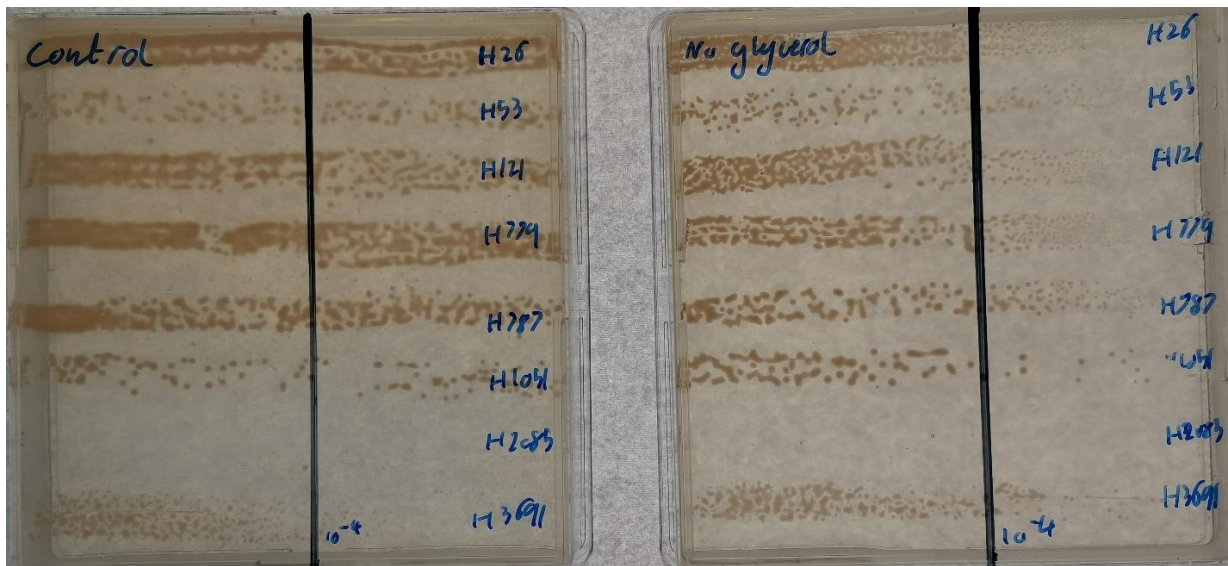 Control
H26
H53
H121
H779
H787
H1051
H2085
H3691
10-4
No glycerol
H26
H53
H121
H779
H787
H3691
10-4